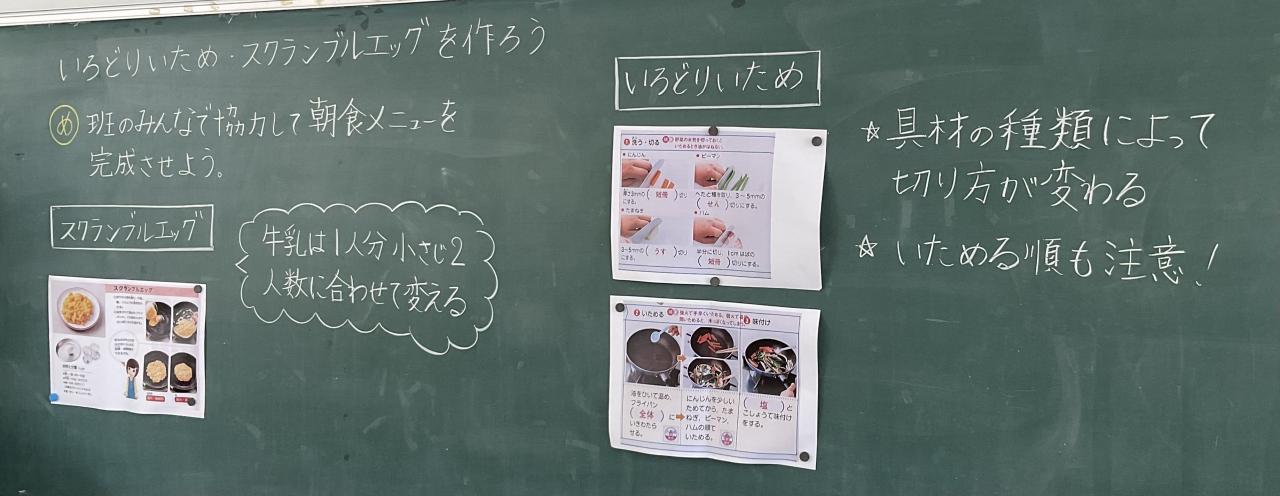 いろどりいため・スクランブルエッグを作ろう
め 班のみんなで協力して朝食メニューを
完成させよう。
スクランブルエッグ
牛乳は1人分小さじ2
人数に合わせて変える
スクランブルエッグ
いろどりいため
1 洗う・切る
野菜の水気を切っておくと、
いためるとき油がはねない。
●にんじん
厚さ3mmの(短冊)切り
にする。
●ピーマン
へたと種を取り、3〜5mmの
(せん)切りにする。
●たまねぎ
3〜5mmの(うす)切り
にする。
●ハム
半分に切し、1cmはばの
(短冊)切りにする。
2 いためる
強火で手早くいためる。弱火で長
3 味付け
油をひいて温め、
フライパン
(全体)に
いきわたら
せる。
にんじんを少しい
ためてから、たま
ねぎ、ピーマン、
ハムの順で
いためる。
(塩)と
こしょうで味付け
をする。
☆具材の種類によって
切り方が変わる
☆いためる順も注意!